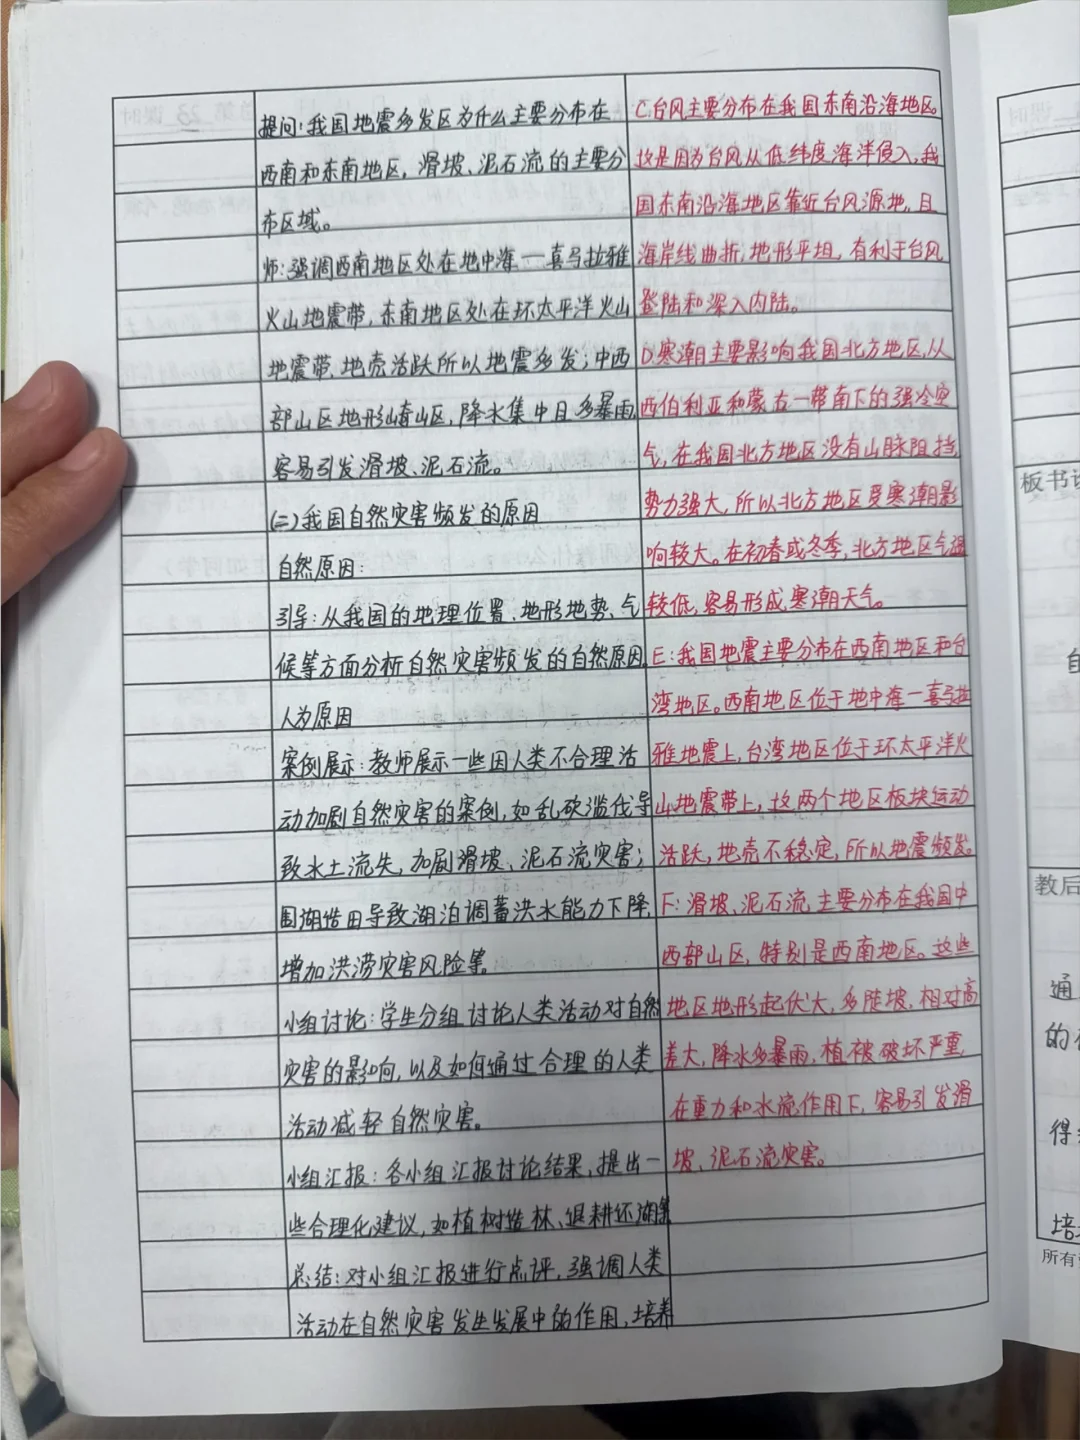 提问：我国地震多发区为什么主要分布在
西南和东南地区，滑坡、泥石流的主要分
布区域。
师：强调西南地区处在地中海一喜马拉雅
火山地震带，东南地区处在环太平洋火山
地震带、地壳活跃所以地震多发；中西
部山区地形崎山区，降水集中且多暴雨，
容易引发滑坡、泥石流。
(二)我国自然灾害频发的原因
自然原因：
引导：从我国的地理位置、地形地势、气
候等方面分析自然灾害频发的自然原因
人为原因
案例展示：教师展示一些因人类不合理活
动加剧自然灾害的案例，如乱砍滥伐导
致水土流失，加剧滑坡、泥石流灾害；
围湖造田导致湖泊调蓄洪水能力下降，
增加洪涝灾害风险等。
小组讨论：学生分组讨论人类活动对自然
灾害的影响，以及如何通过合理的人类
活动减轻自然灾害。
小组汇报：各小组汇报讨论结果，提出一
些合理化建议，如植树造林、退耕还湖等
总结：对小组汇报进行点评，强调人类
活动在自然灾害发生发展中的作用，培养
C.台风主要分布在我国东南沿海地区。
这是因为台风从低纬度海洋侵入，我
国东南沿海地区靠近台风源地，且
海岸线曲折，地形平坦，有利于台风
登陆和深入内陆。
D.寒潮主要影响我国北方地区，从
西伯利亚和蒙古一带南下的强冷空
气，在我国北方地区没有山脉阻挡，
势力强大，所以北方地区受寒潮影
响较大。在初春或冬季，北方地区气温
较低，容易形成寒潮天气。
E：我国地震主要分布在西南地区和台
湾地区。西南地区位于地中海一喜马拉
雅地震上，台湾地区位于环太平洋火
山地震带上，这两个地区板块运动
活跃，地壳不稳定，所以地震频发。
F：滑坡、泥石流主要分布在我国中
西部山区，特别是西南地区。这些
地区地形起伏大，多陡坡，相对高
差大，降水多暴雨，植被破坏严重，
在重力和水流作用下，容易引发滑
坡、泥石流灾害。
板书
教后
通
的
得
培
所有